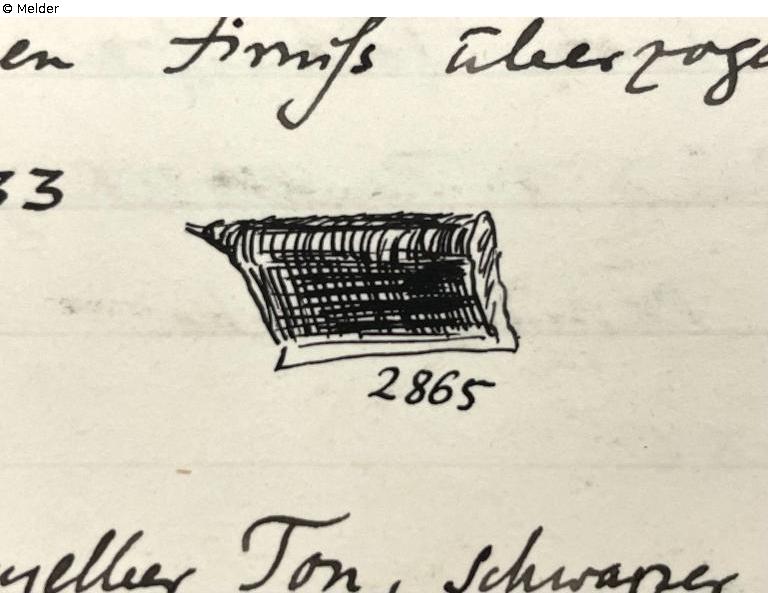 © Melder
en Firniss überzoge
33
2865
gelber Ton, schwarzer